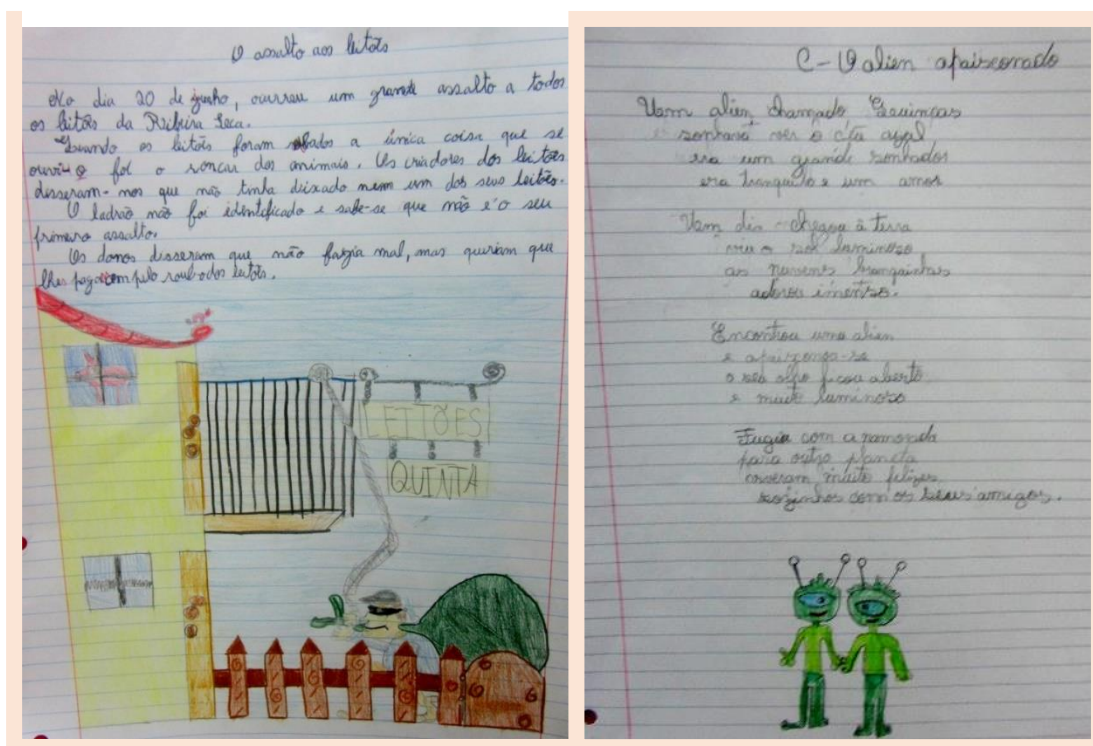 O assalto aos leitões
No dia 20 de junho, ocurreu um grande assalto a todos
os leitões da Ribeira Seca.
Quando os leitões foram robados a única coisa que se
ouviu foi o roncar dos animais. Os criadores dos leitões
disseram-nos que não tinha deixado nem um dos seus leitões.
O ladrão não foi identificado e sabe-se que não é o seu
primeiro assalto.
Os donos disseram que não fazia mal, mas queriam que
lhes pagassem pelo roubo dos leitões.
LEITÕES
QUINTA
C- O alien apaixonado
Um alien chamado
sonhava ver o céu azul
era um grande sonhador
era tranquilo e um amor
Um dia chegou à terra
viu o sol luminoso
as nuvens branquinhas
adorou imenso.
Encontrou uma alien
e apaixonou-se
o seu olho ficou aberto
e muito luminoso
Fugiu com a namorada
para outro planeta
viveram muito felizes
sozinhos com os seus amigos.